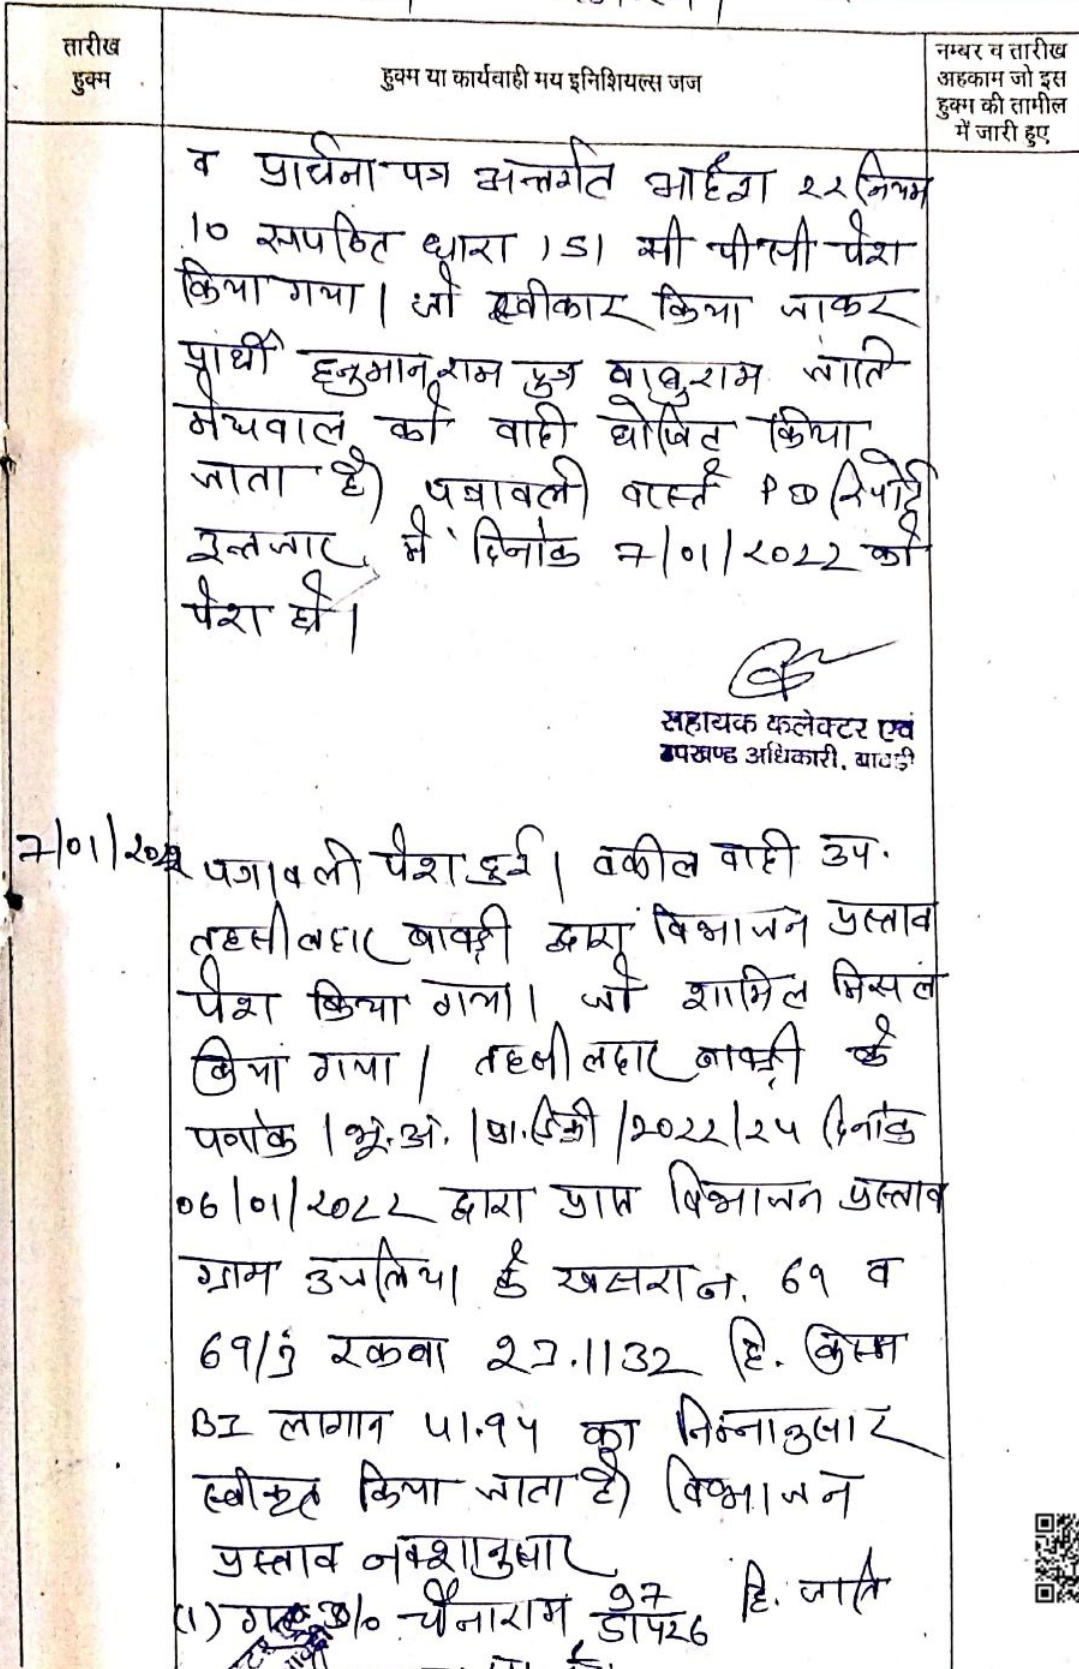 तारीख
हुक्म
हुक्म या कार्यवाही मय इनिशियल्स जज
नम्बर व तारीख
अहकाम जो इस
हुक्म की तामील
में जारी हुए
व प्रार्थना पत्र अन्तर्गत आदेश २२ नियम
10 सपठित धारा 151 सी पी सी पेश
किया गया। जो स्वीकार किया जाकर
प्रार्थी हनुमान राम पुत्र बाबुराम जाति
मेघवाल को वादी घोषित किया
जाता है। पत्रावली वास्ते P D रिपोर्ट
इन्तजार में दिनांक 7/01/२०२२ को
पेश हो।
सहायक कलेक्टर एवं
उपखण्ड अधिकारी, बावड़ी
7/01/२०२२ पत्रावली पेश हुई। वकील वादी उप.
तहसीलदार बावड़ी द्वारा विभाजन प्रस्ताव
पेश किया गया। जो शामिल मिसल
किया गया। तहसीलदार बावड़ी के
पत्रांक / भू.अ. / प्रा.डिक्री /२०२२/२५ दिनांक
०6/०1/२०२२ द्वारा प्राप्त विभाजन प्रस्ताव
ग्राम उजलिया के खसरा न. 6१ व
6१/ रकबा २3.1132 हि. किस्म
BI लागान ५1.१५ का निम्नानुसार
स्वीकृत किया जाता है। विभाजन
प्रस्ताव नक्शानुसार
(1) चैनाराम हि. जाति